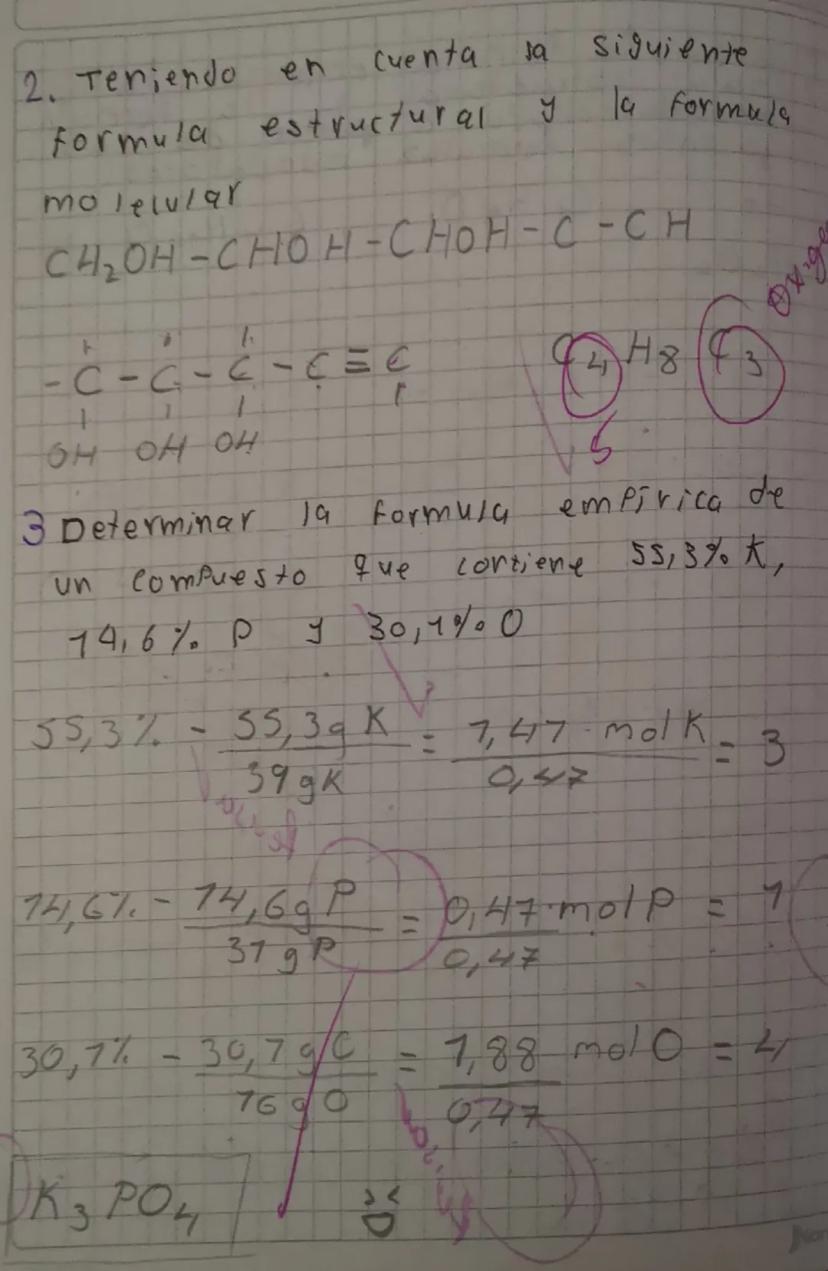 2. Teniendo en cuenta la siguiente
formula estructural y la formula
molelular
CH₂OH - CHOH - CHOH - C - CH
- C - C - C - C ≡ C
OH OH OH
C4 H8 C3
5
3 Determinar la formula empirica de
un compuesto que contiene 55,3% K,
14,6% P y 30,1% O
55,3% - 55,3g K / 39 gK = 1,47 mol K / 0,47 = 3
14,6% - 14,6g P / 31 g P = 0,47 mol P / 0,47 = 1
30,1% - 30,1 g C / 16 g O = 1,88 mol O / 0,47 = 4
K₃ PO₄